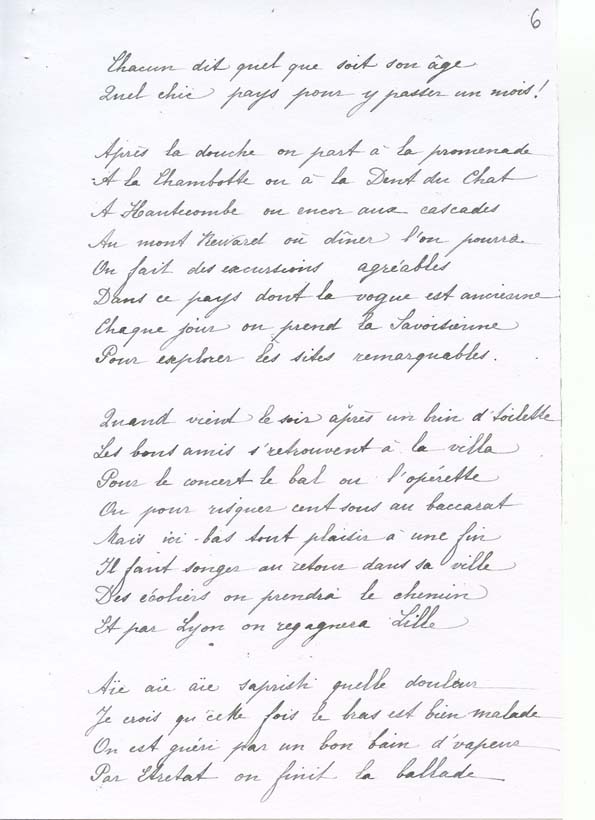 6
Chacun dit quel que soit son âge
Quel chic pays pour y passer un mois!
Après la douche on part à la promenade
A la Chambotte ou à la Dent du Chat
A Hautecombe ou encor aux cascades
Au mont Revard où dîner l'on pourra
On fait des excursions agréables
Dans ce pays dont la vogue est ancienne
Chaque jour on prend la Savoisienne
Pour explorer les sites remarquables.
Quand vient le soir après un brin d'toilette
Les bons amis s'retrouvent à la villa
Pour le concert le bal ou l'opérette
Ou pour risquer cent sous au baccarat
Mais ici-bas tout plaisir à une fin
Il faut songer au retour dans sa ville
Des écoliers on prendra le chemin
Et par Lyon on regagnera Lille
Aïe aïe aïe sapristi quelle douleur
Je crois qu'cette fois le bras est bien malade
On est guéri par un bon bain d'vapeur
Par Etretat on finit la ballade